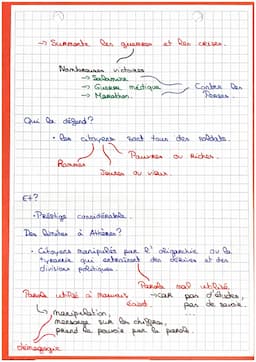 → Surmonte les guerres et les crises.
Nombreuses victoires
→ Salamine
→ Guerre médique
→ Marathon.
Contre les Perses.
Qui la défend ?
• Les citoyens sont tous des soldats.
Hommes
Pauvres ou Riches.
Jeunes ou vieux.
Et ?
• Prestige considérable.
Des limites à Athènes ?
• Citoyens manipulés par l'oligarchie ou la
tyrannie qui entraînent des dérives et des
divisions politiques.
Parole mal utilisé
Parole utilisé à mauvais
→ car pas d'études,
pas de savoir.
manipulation,
mensonge sur les chiffres,
prend le pouvoir par la parole.
démagogie